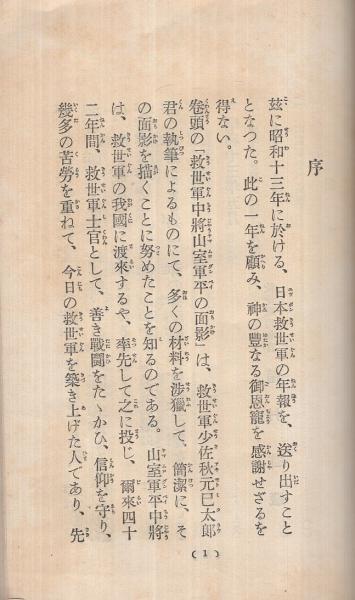 序
玆に昭和十三年に於ける、日本救世軍の年報を、送り出すこと
となつた。此の一年を顧み、神の豐なる御恩寵を感謝せざるを
得ない。
卷頭の「救世軍中將山室軍平の面影」は、救世軍少佐秋元巳太郎
君の執筆によるものにて、多くの材料を涉獵して、簡潔に、そ
の面影を描くことに努めたことを知るのである。山室軍平中將
は、救世軍の我國に渡來するや、率先して之に投じ、爾來四十
二年間、救世軍士官として、善き戰鬪をたゝかひ、信仰を守り、
幾多の苦勞を重ねて、今日の救世軍を築き上げた人であり、先
( 1 )